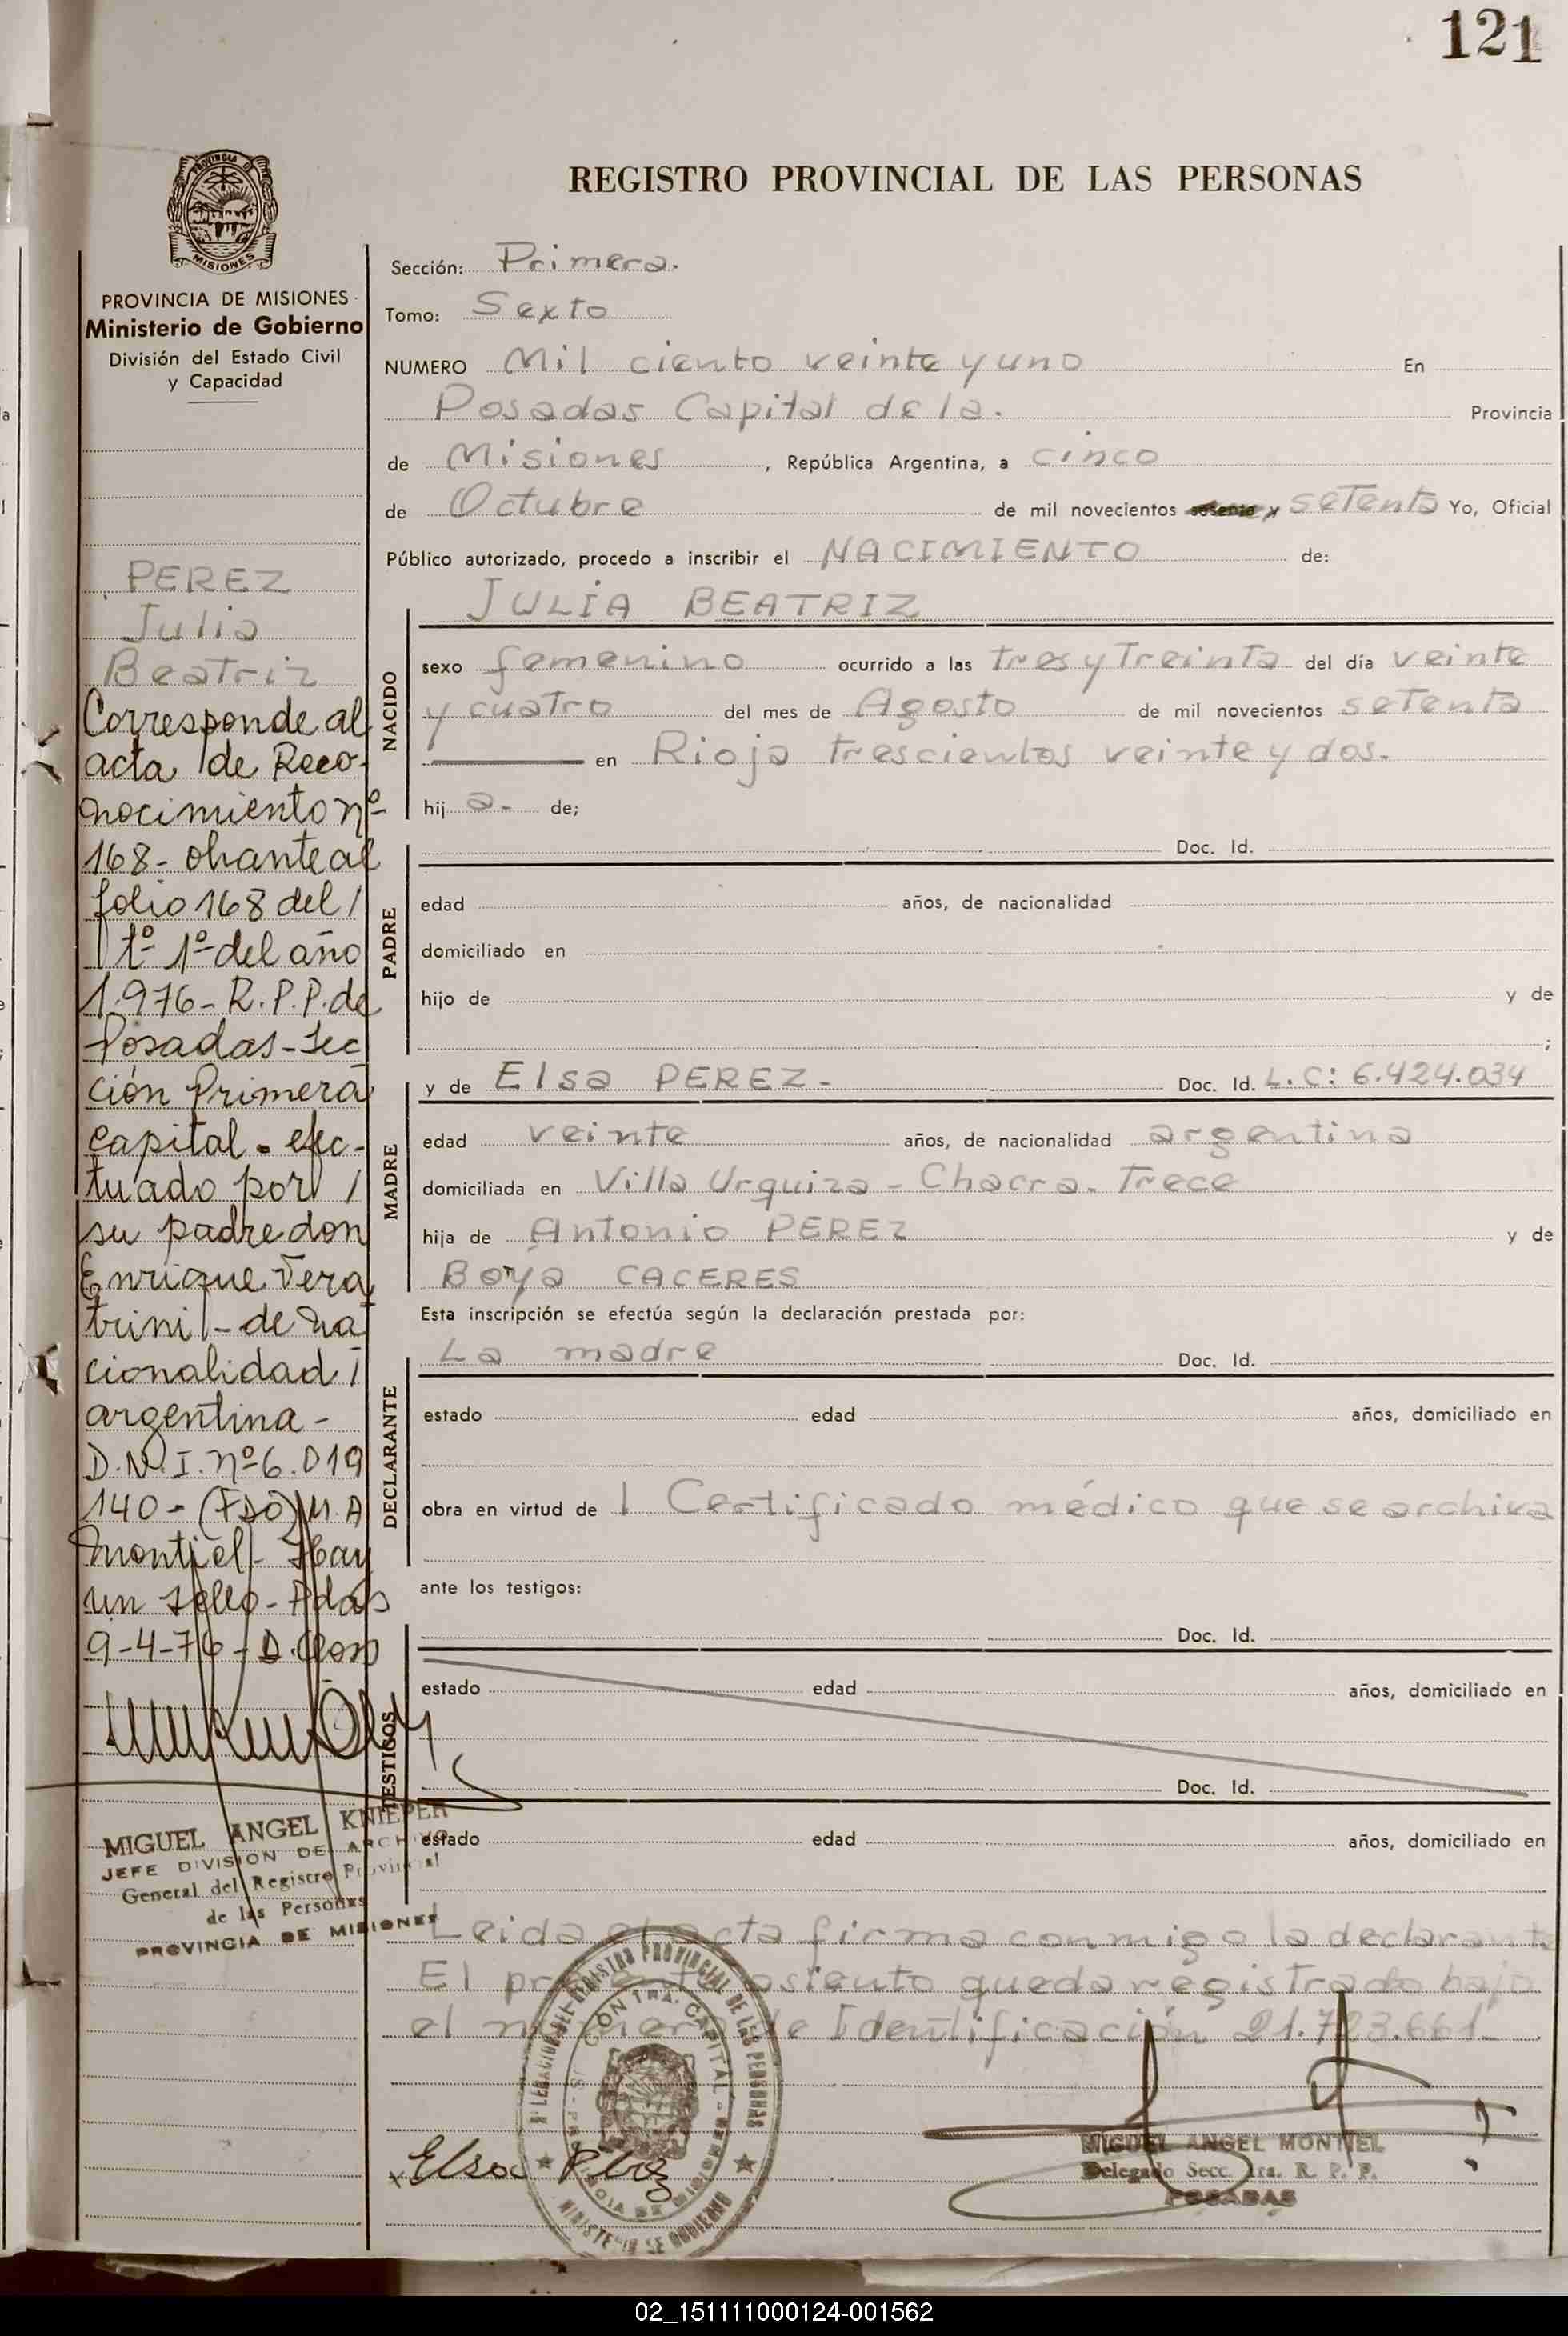 121
PROVINCIA DE MISIONES
PROVINCIA DE MISIONES
Ministerio de Gobierno
División del Estado Civil
y Capacidad
PEREZ
Julia
Beatriz
Corresponde al
acta de Reco-
nocimiento nº
168- obrante al
folio 168 del /
tº 1º del año
1.976- R.P.P. de
Posadas- Sec
ción Primera
capital. efec-
tuado por /
su padre don
Enrique Vera
trini - de na
cionalidad /
argentina -
D.N.I. nº 6.019
140- (Fdo) M.A
Montiel- Hay
un sello- Pdas
9-4-76- D.
MIGUEL ANGEL KNIEPER
JEFE DIVISION DE ARCHIVO
General del Registro Provincial
de las Personas
PROVINCIA DE MISIONES
REGISTRO PROVINCIAL DE LAS PERSONAS
Sección: Primera.
Tomo: Sexto
NUMERO Mil ciento veinte y uno En
Posadas Capital de la. Provincia
de Misiones, República Argentina, a cinco
de Octubre de mil novecientos sesenta y setenta Yo, Oficial
Público autorizado, procedo a inscribir el NACIMIENTO de:
JULIA BEATRIZ
NACIDO
sexo femenino ocurrido a las tres y Treinta del día veinte
y cuatro del mes de Agosto de mil novecientos setenta
en Rioja trescientos veinte y dos.
hij a. de;
PADRE
Doc. Id.
edad años, de nacionalidad
domiciliado en
hijo de y de
;
MADRE
y de Elsa PEREZ- Doc. Id. L.C: 6.424.034
edad veinte años, de nacionalidad argentina
domiciliada en Villa Urquiza - Chacra. Trece
hija de Antonio PEREZ y de
Boya CACERES
Esta inscripción se efectúa según la declaración prestada por:
DECLARANTE
La madre Doc. Id.
estado edad años, domiciliado en
obra en virtud de 1 Certificado médico que se archiva
ante los testigos:
TESTIGOS
Doc. Id.
estado edad años, domiciliado en
Doc. Id.
estado edad años, domiciliado en
Leida el acta firma conmigo la declarante
El presente asiento queda registrado bajo
el numero de Identificación 21.723.661-
DELEGACION DEL REGISTRO PROVINCIAL DE LAS PERSONAS
MINISTERIO DE GOBIERNO
Elsa Perez
MIGUEL ANGEL MONTIEL
Delegado Secc. 1ra. R. P. P.
POSADAS
02_151111000124-001562